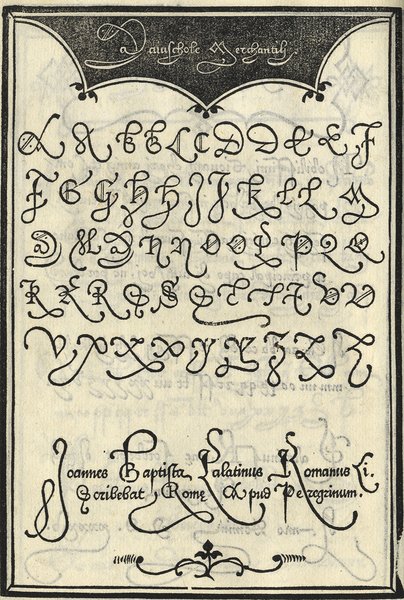 Maiuschole Merchantili.
A A B B C C D D E E F
F G G H H I J K L L M
M M M N N O O P P Q Q
R R R S S S T T T V V
V X X X Y Y Z Z Z
Joannes Baptista Palatinus Romanus Ci.
Scribebat Romę Apud Peregrinum.